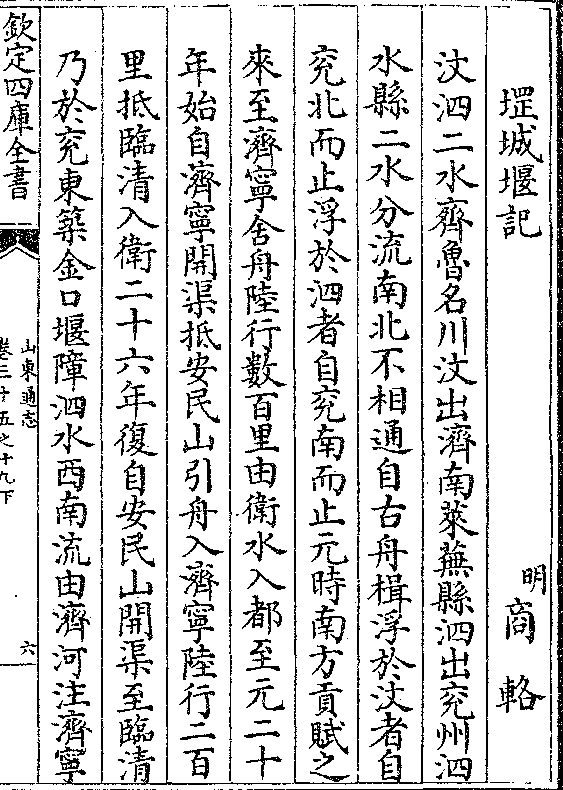 堽城堰記
明商輅
汶泗二水齊魯名川汶出濟南萊蕪縣泗出兗州泗
水縣二水分流南北不相通自古舟楫浮於汶者自
兗北而止浮於泗者自兗南而止元時南方貢賦之
來至濟寧舍舟陸行數百里由衛水入都至元二十
年始自濟寧開渠抵安民山引舟入濟寧陸行二百
里抵臨清入衛二十六年復自安民山開渠至臨清
乃於兗東築金口堰障泗水西南流由濟河注濟寧
欽定四庫全書
山東通志
卷三十五之十九下
六